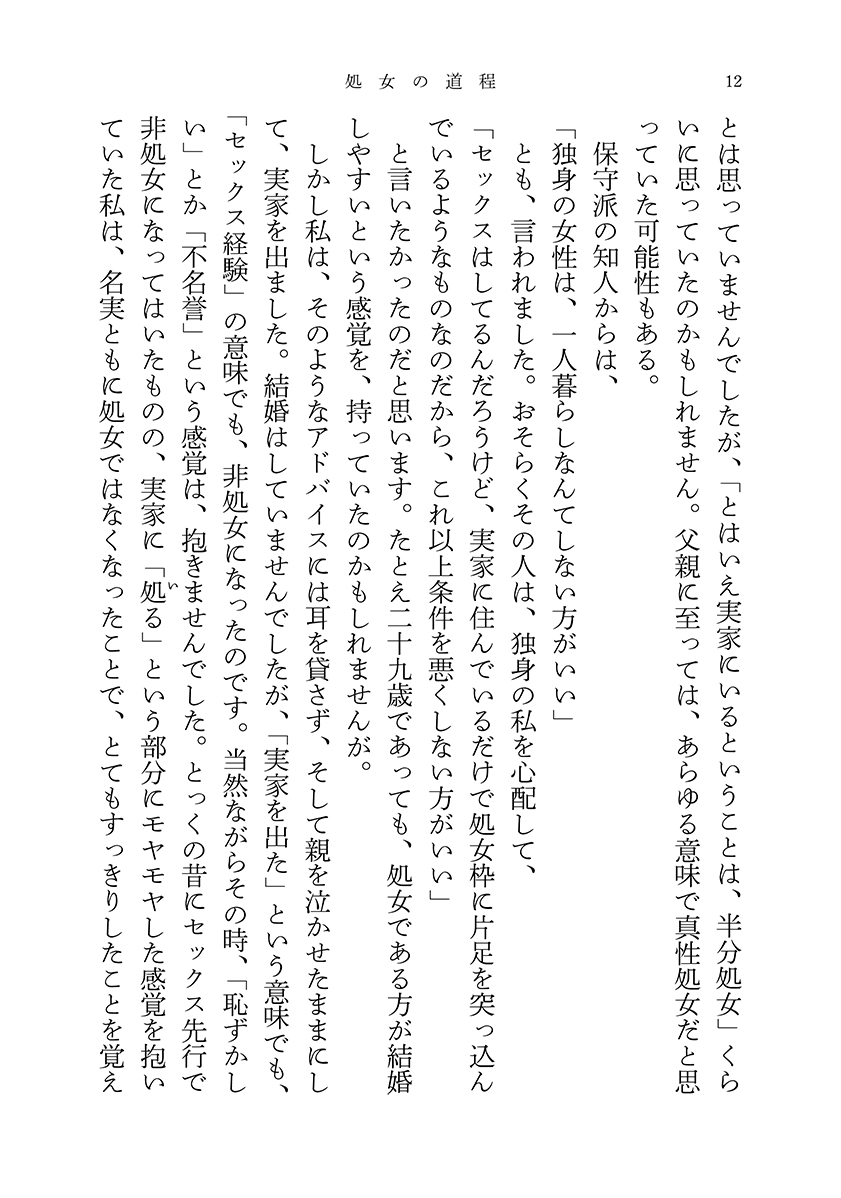 処女の道程
12
とは思っていませんでしたが、「とはいえ実家にいるということは、半分処女」くら
いに思っていたのかもしれません。父親に至っては、あらゆる意味で真性処女だと思
っていた可能性もある。
保守派の知人からは、
「独身の女性は、一人暮らしなんてしない方がいい」
とも、言われました。おそらくその人は、独身の私を心配して、
「セックスはしてるんだろうけど、実家に住んでいるだけで処女枠に片足を突っ込ん
でいるようなものなのだから、これ以上条件を悪くしない方がいい」
と言いたかったのだと思います。たとえ二十九歳であっても、処女である方が結婚
しやすいという感覚を、持っていたのかもしれませんが。
しかし私は、そのようなアドバイスには耳を貸さず、そして親を泣かせたままにし
て、実家を出ました。結婚はしていませんでしたが、「実家を出た」という意味でも、
「セックス経験」の意味でも、非処女になったのです。当然ながらその時、「恥ずかし
い」とか「不名誉」という感覚は、抱きませんでした。とっくの昔にセックス先行で
非処女になってはいたものの、実家に「処る」という部分にモヤモヤした感覚を抱い
い
ていた私は、名実ともに処女ではなくなったことで、とてもすっきりしたことを覚え